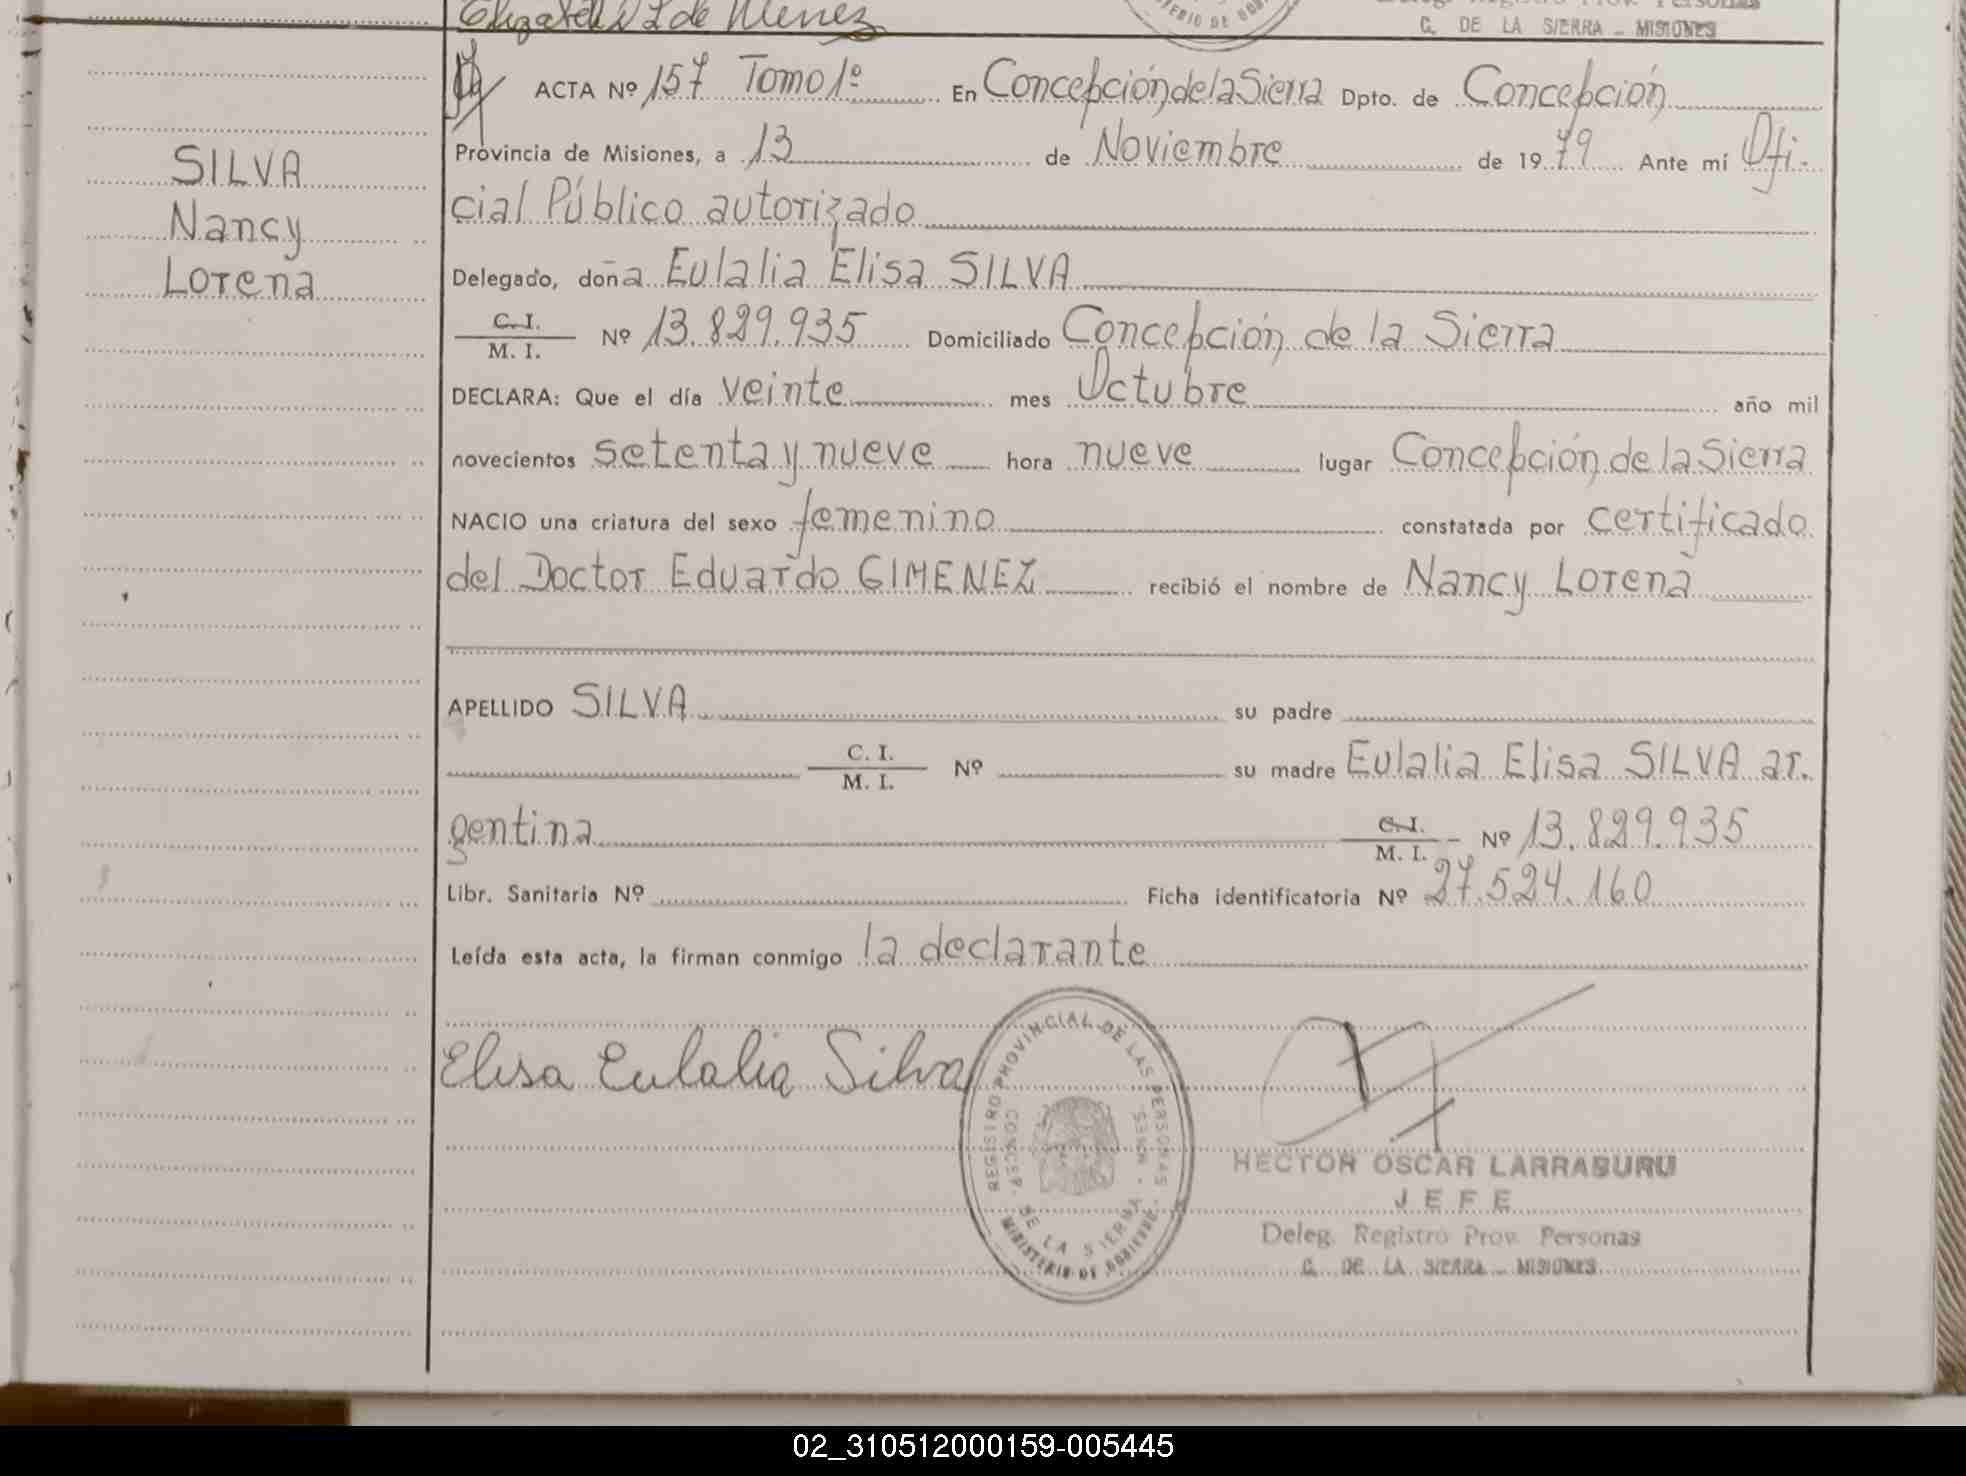 Elizabeth L de Menez
MINISTERIO DE GOBI
Deleg. Registro Prov. Personas
C. DE LA SIERRA - MISIONES
SILVA
Nancy
Lorena
ACTA Nº 157 Tomo 1º En Concepción de la Sierra Dpto. de Concepción
Provincia de Misiones, a 13 de Noviembre de 1979 Ante mí Ofi-
cial Público autorizado
Delegado, doña Eulalia Elisa SILVA
C. I. / M. I. Nº 13.829.935 Domiciliado Concepción de la Sierra
DECLARA: Que el día veinte mes Octubre año mil
novecientos setenta y nueve hora nueve lugar Concepción de la Sierra
NACIO una criatura del sexo femenino constatada por certificado
del Doctor Eduardo GIMENEZ recibió el nombre de Nancy Lorena
APELLIDO SILVA su padre
C. I. / M. I. Nº su madre Eulalia Elisa SILVA ar-
gentina C. I. / M. I. Nº 13.829.935
Libr. Sanitaria Nº Ficha identificatoria Nº 27.524.160
Leída esta acta, la firman conmigo la declarante
Elisa Eulalia Silva
REGISTRO PROVINCIAL DE LAS PERSONAS
CONCEP. DE LA SIERRA - MNES.
MINISTERIO DE GOBIERNO
HECTOR OSCAR LARRABURU
JEFE
Deleg. Registro Prov. Personas
C. DE LA SIERRA - MISIONES
02_310512000159-005445